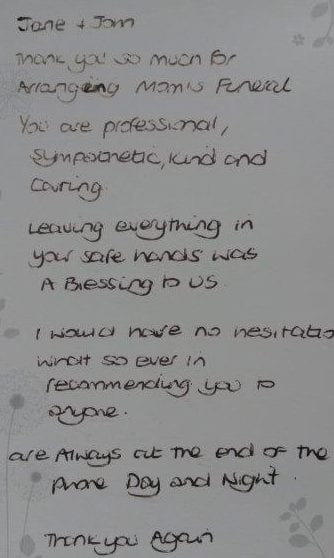 Jane + Jom
Thank you so much for
Arrangeing Mom's Funeral
You are professional,
sympathetic, kind and
Caring.
Leaving everything in
your safe hands was
A Blessing to us.
I would have no hesitatio
what so ever in
recommending you to
anyone.
are Always at the end of the
phone Day and Night.
Thank you Again